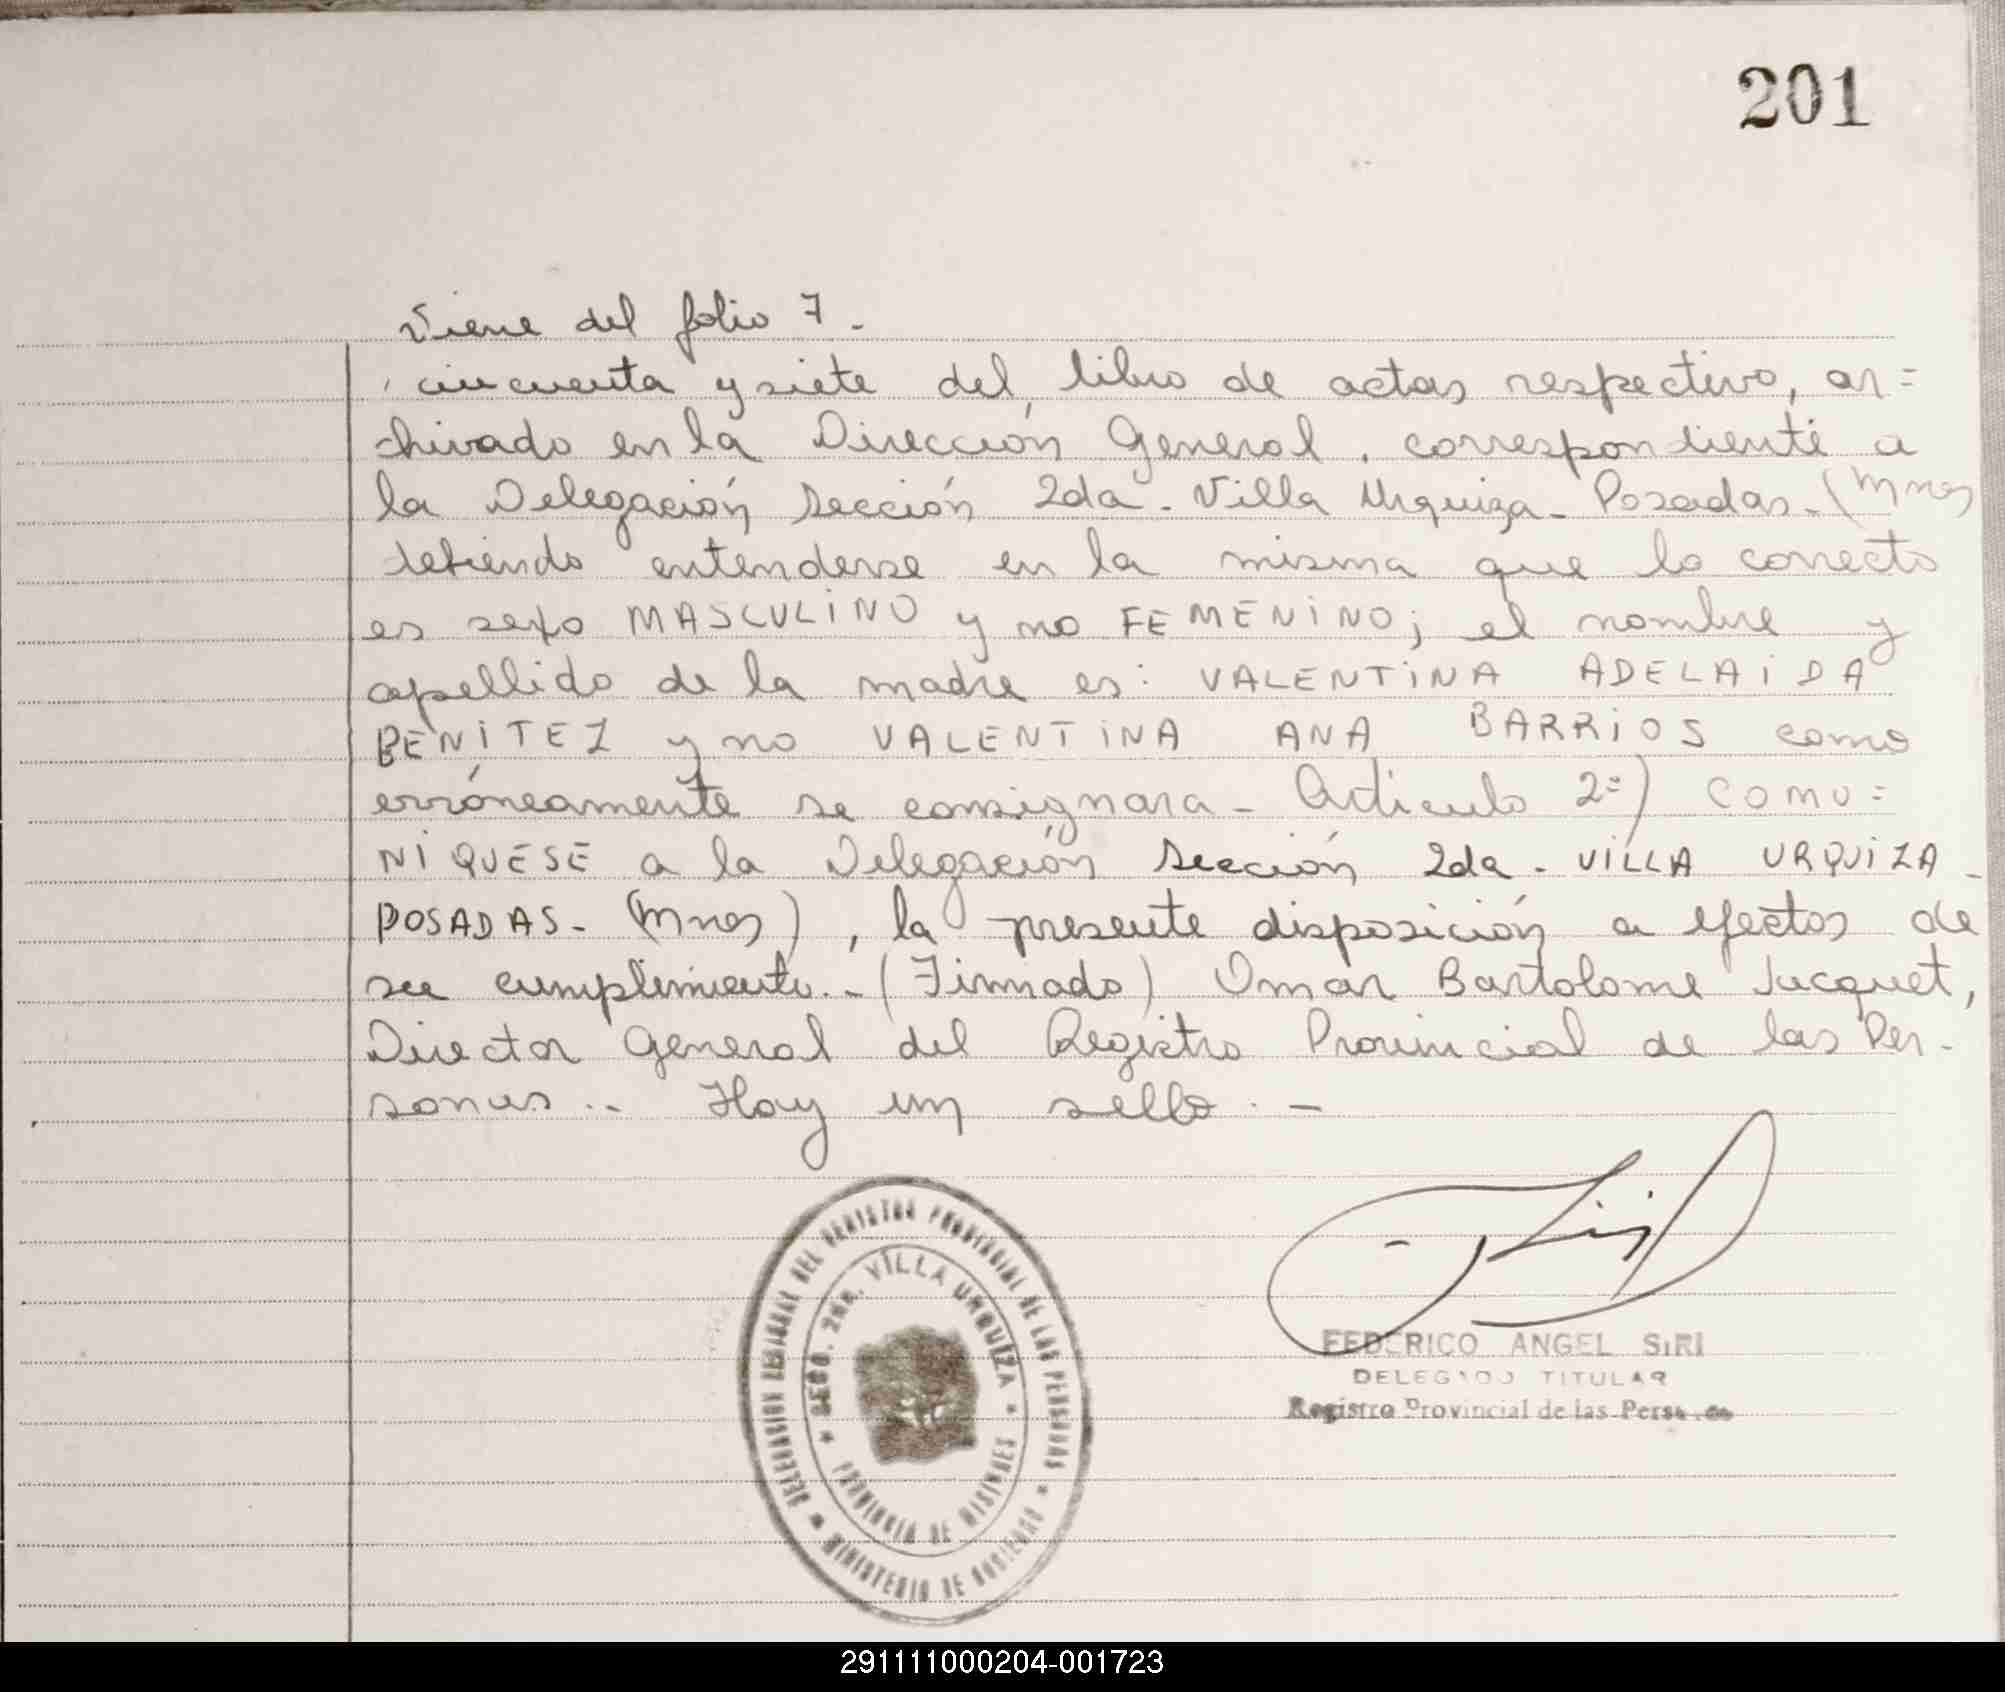 201
Viene del folio 7.-
cincuenta y siete del libro de actas respectivo, ar=
chivado en la Dirección General, correspondiente a
la Delegación Sección 2da - Villa Urquiza - Posadas - (Mnes)
debiendo entenderse en la misma que lo correcto
es sexo MASCULINO y no FEMENINO; el nombre y
apellido de la madre es: VALENTINA ADELAIDA
BENITEZ y no VALENTINA ANA BARRIOS como
erróneamente se consignara - Artículo 2º) COMU=
NIQUESE a la Delegación Sección 2da - VILLA URQUIZA -
POSADAS - (Mnes), la presente disposición a efectos de
su cumplimiento.- (Firmado) Omar Bartolome Jacquet,
Director General del Registro Provincial de las Per-
sonas.- Hay un sello.-
DELEGACION DEL REGISTRO PROVINCIAL DE LAS PERSONAS
SECC. 2DA. VILLA URQUIZA
PROVINCIA DE MISIONES
MINISTERIO DE GOBIERNO
FEDERICO ANGEL SIRI
DELEGADO TITULAR
Registro Provincial de las Personas
291111000204-001723